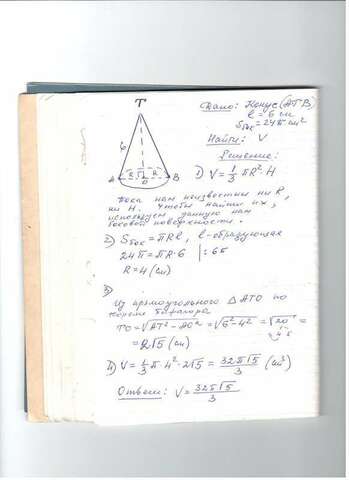 Дано: Конус (АТВ)
l = 6 см
Sбок = 24π см²
Найти: V
Решение:
T
6
A R R B
O
1) V = 1/3 πR²·H
Пока нам неизвестны ни R,
ни H. Чтобы найти их,
используем данную нам
боковой поверхности.
2) Sбок = πRl, l-образующая
24π = πR·6 |:6π
R = 4 (см)
3)
Из прямоугольного ΔATO по
теореме Пифагора
TO = √AT² - AO² = √6² - 4² = √20 =
4·5
= 2√5 (см)
4) V = 1/3 π·4²·2√5 = 32π√5/3 (см³)
Ответ: V = 32π√5/3